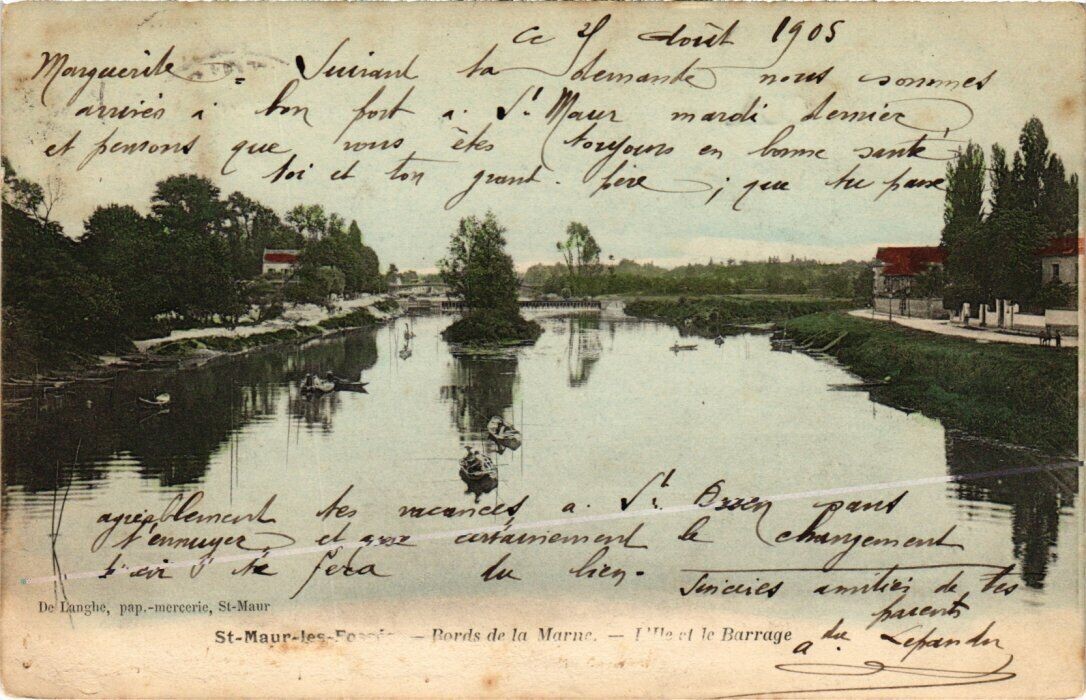 Ce 25 Août 1905
Marguerite - Suivant ta demande nous sommes
arrivés à bon port a St Maur mardi dernier
et pensons que vous êtes toujours en bonne santé
toi et ton grand-père ; que tu passe
agréablement tes vacances a St Ouen sans
t'ennuyer et que certainement le changement
d'air te fera du bien.
Sincères amitiés de tes
parents
du
De Langhe, pap.-mercerie, St-Maur
St-Maur-les-Fossés — Bords de la Marne. — L'Ile et le Barrage